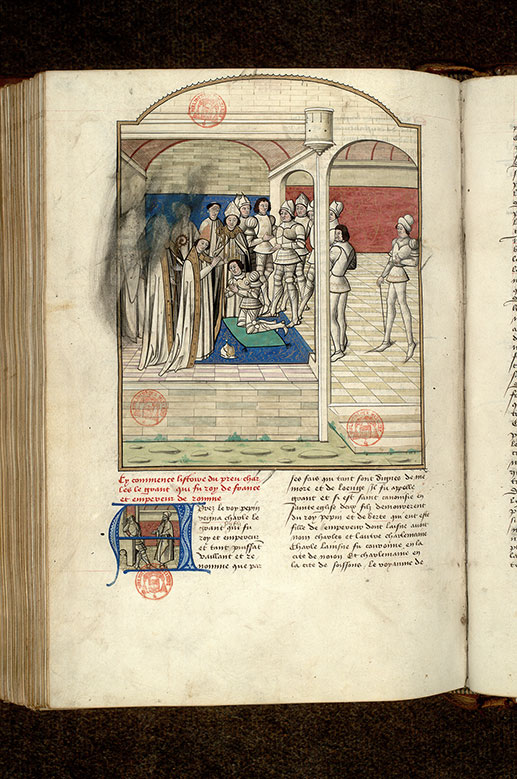 Cy commence listoire du preu char
les le grant qui fu roy de france
et empereur de romme
Apres le roy pepin
regna charle le
grant qui fu
roy et empereur
et tant puissāt
vaillant et re
nomme que par
ses fais qui tant sont dignes de me
more et de loenge il fu appelle
grant et si est saint canonise en
sainte eglise deux filz demourerent
du roy pepin et de berte qui eut este
fille de lempereur dont laisne auoit
nom charles et lautre charlemaine
Charle laisne fu couronne en la
cite de noion Et charlemaine en
la cite de soissons le royaume de